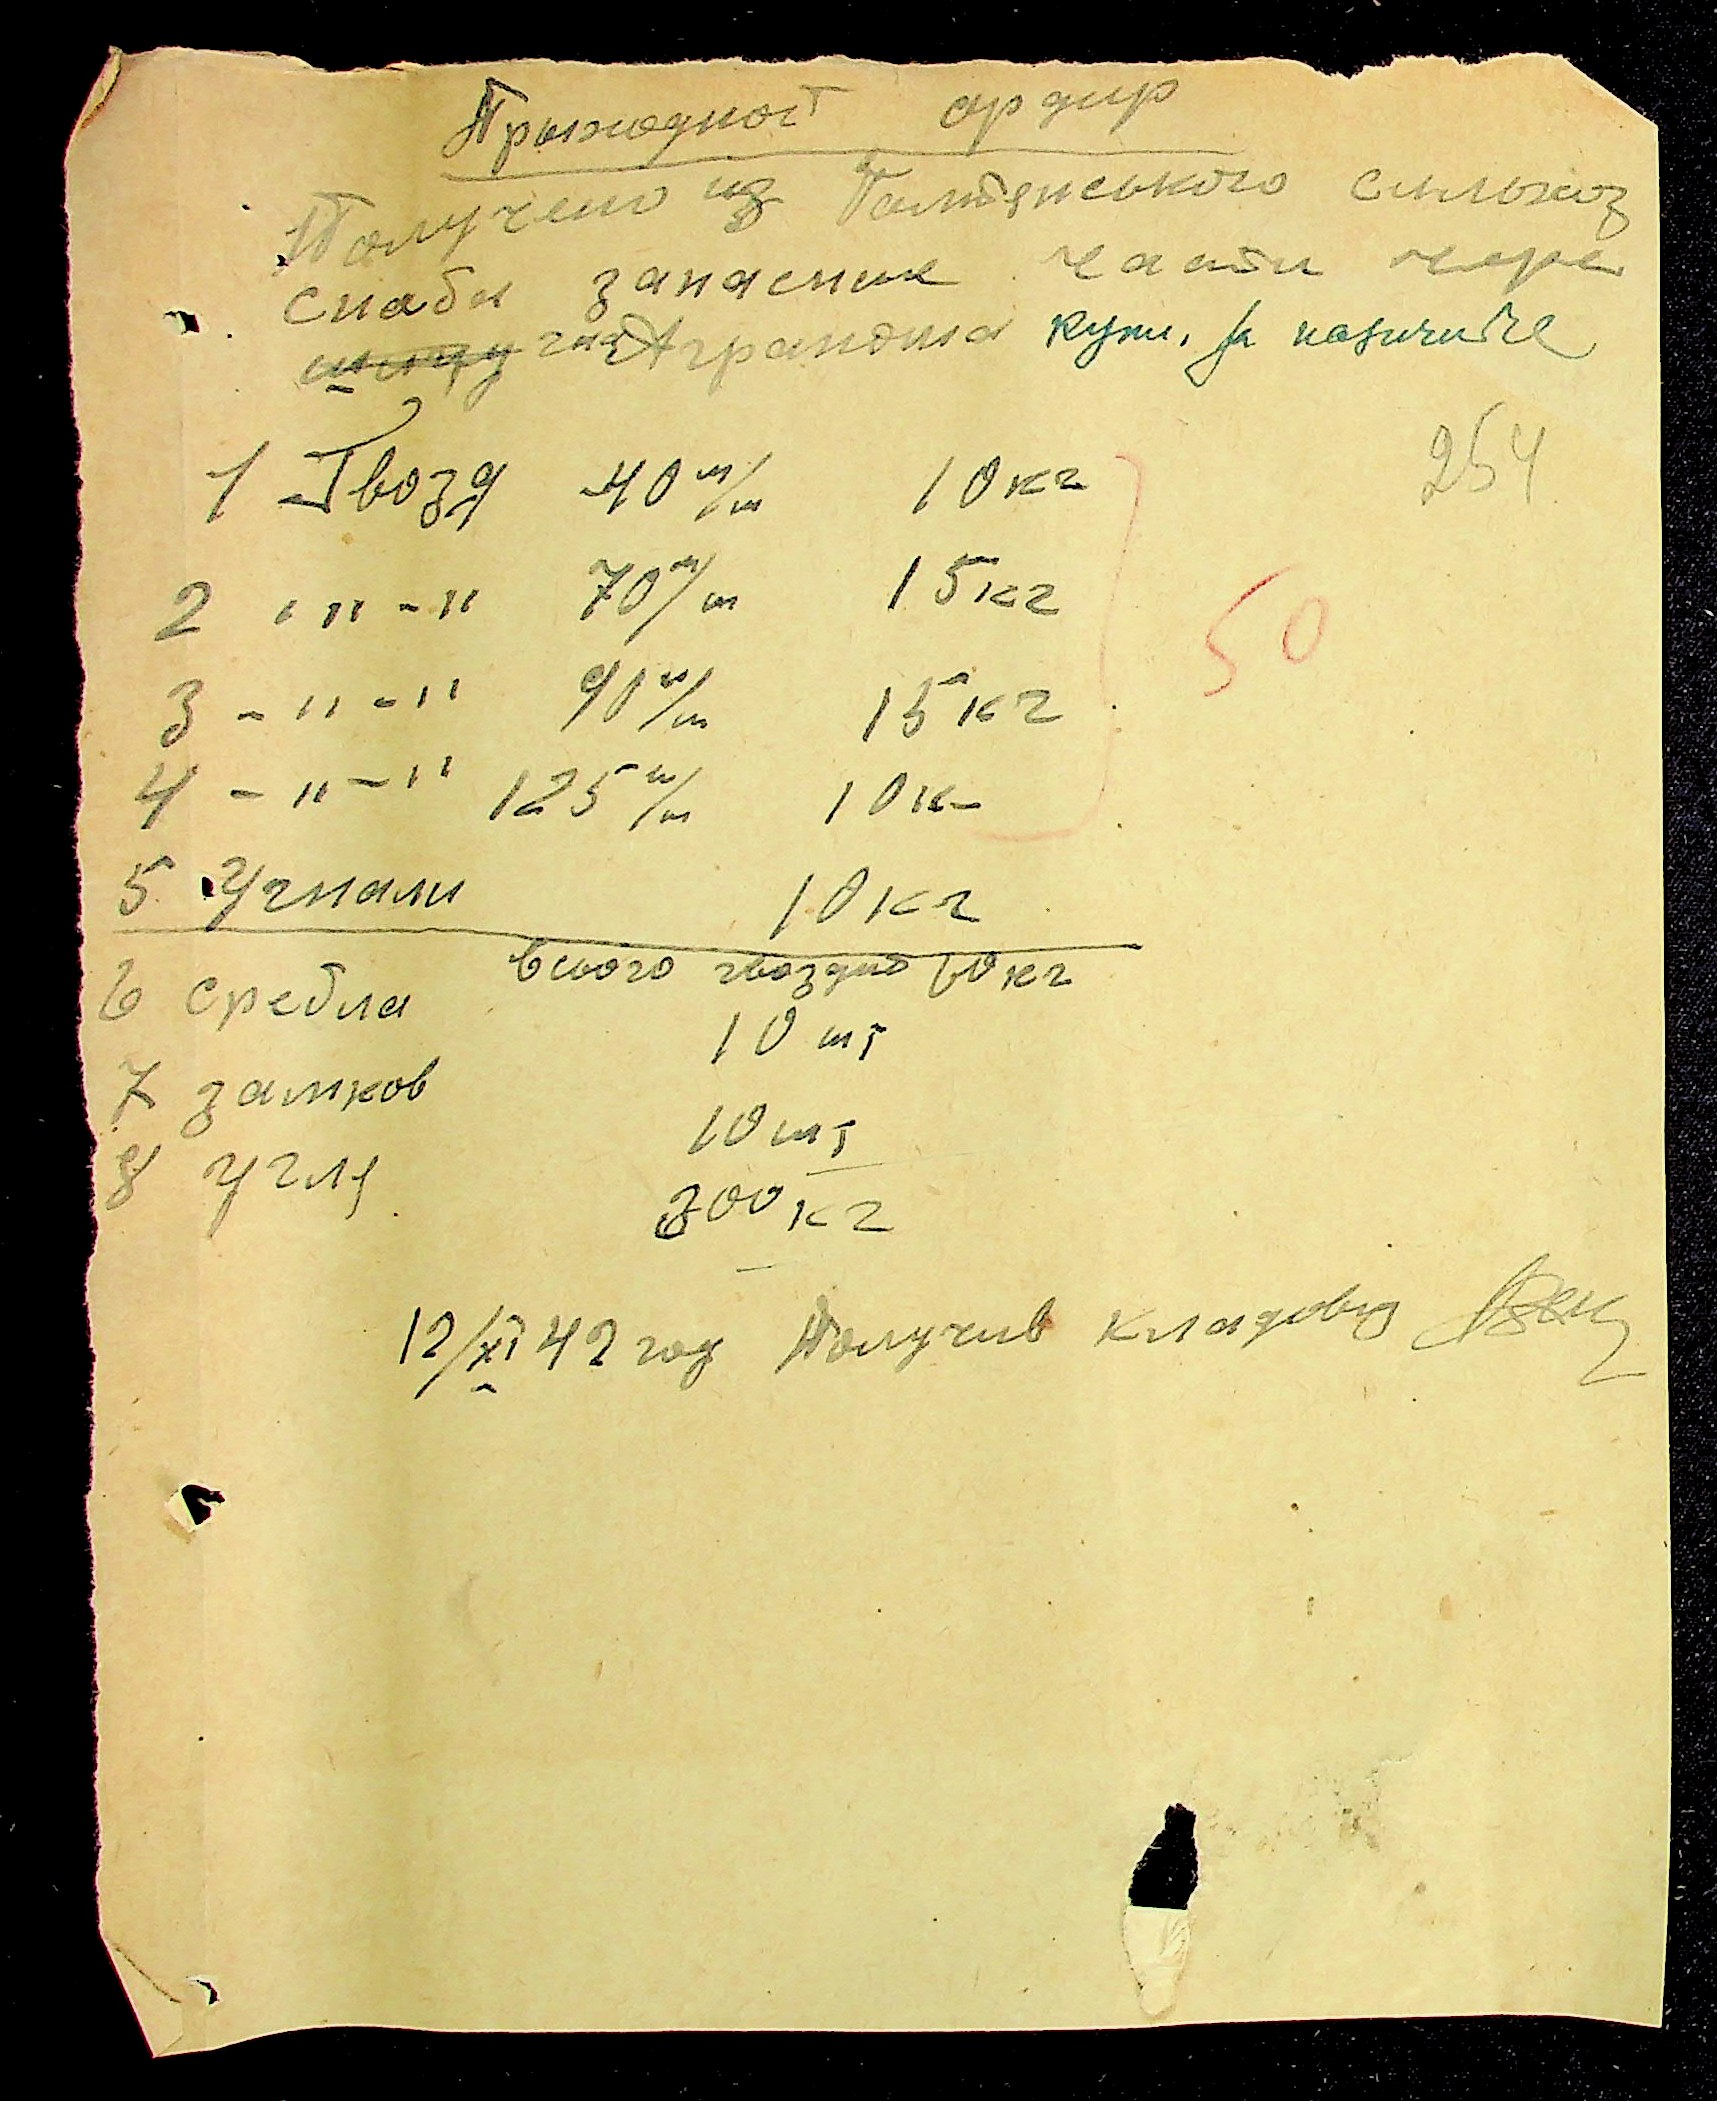 Прыходност ордир
Получено из Голтянського сильхоз
снаба запасние части чере
Агранома
254
1 Гвозд 40 м/м 10 кг
2 " " - " 70 м/м 15 кг
50
3 - " - " 90 м/м 15 кг
4 - " - " 125 м/м 10 к-
5 Угнали 10 кг
всього гвоздив 60 кг
6 Средла 10 шт
7 замков 10 шт
8 угля 300 кг
12/XI 42 год Получив кладовщ